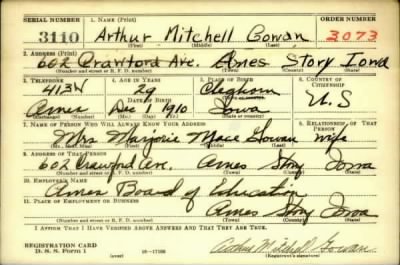 SERIAL NUMBER 1. NAME (Print) ORDER NUMBER
3110 Arthur Mitchell Gowan 3073
(First) (Middle) (Last)
2. ADDRESS (Print)
602 Crawford Ave. Ames Story Iowa
(Number and street or R. F. D. number) (Town) (County) (State)
3. TELEPHONE 4. AGE IN YEARS 5. PLACE OF BIRTH 6. COUNTRY OF CITIZENSHIP
413W 29 Cleghorn
DATE OF BIRTH (Town or county)
Ames Dec 1 1910 Iowa U.S
(Exchange) (Mo.) (Day) (Yr.) (State or country)
7. NAME OF PERSON WHO WILL ALWAYS KNOW YOUR ADDRESS 8. RELATIONSHIP OF THAT PERSON
Mrs Marjorie Mace Gowan wife
(Mr., Mrs., Miss) (First) (Middle) (Last)
9. ADDRESS OF THAT PERSON
602 Crawford Ave. Ames Story Iowa
(Number and street or R. F. D. number) (Town) (County) (State)
10. EMPLOYER'S NAME
Ames Board of Education
11. PLACE OF EMPLOYMENT OR BUSINESS
Ames Story Iowa
(Number and street or R. F. D. number) (Town) (County) (State)
I AFFIRM THAT I HAVE VERIFIED ABOVE ANSWERS AND THAT THEY ARE TRUE.
REGISTRATION CARD
D. S. S. Form 1 (over) Arthur Mitchell Gowan
(Registrant's signature)